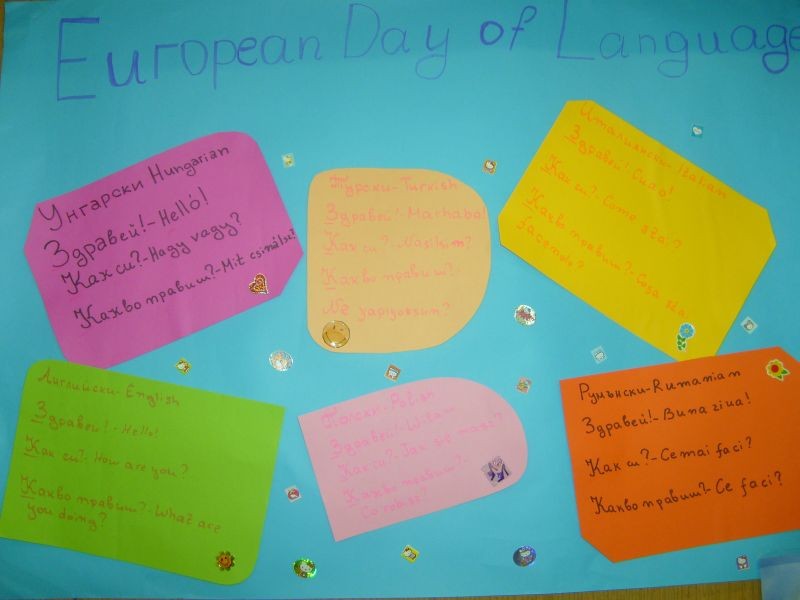 European Day of Language
Унгарски Hungarian
Здравей!-Helló!
Как си?-Hagy vagy?
Какво правиш?-Mit csinálsz?
Турски-Turkish
Здравей!-Marhaba!
Как си?-Nasilsim?
Какво правиш?-
Ne yapiyorsun?
Италиански-Italian
Здравей!-Ciao!
Как си?-Come stai?
Какво правиш?-Cosa sta
facendo?
Английски-English
Здравей!-Hello!
Как си?-How are you?
Какво правиш?-What are
you doing?
Полски-Polish
Здравей!-Wita-
Как си?-Jak się masz?
Какво правиш?-
Co robisz?
Румънски-Rumanian
Здравей!-Buna ziua!
Как си?-Ce mai faci?
Какво правиш?-Ce faci?